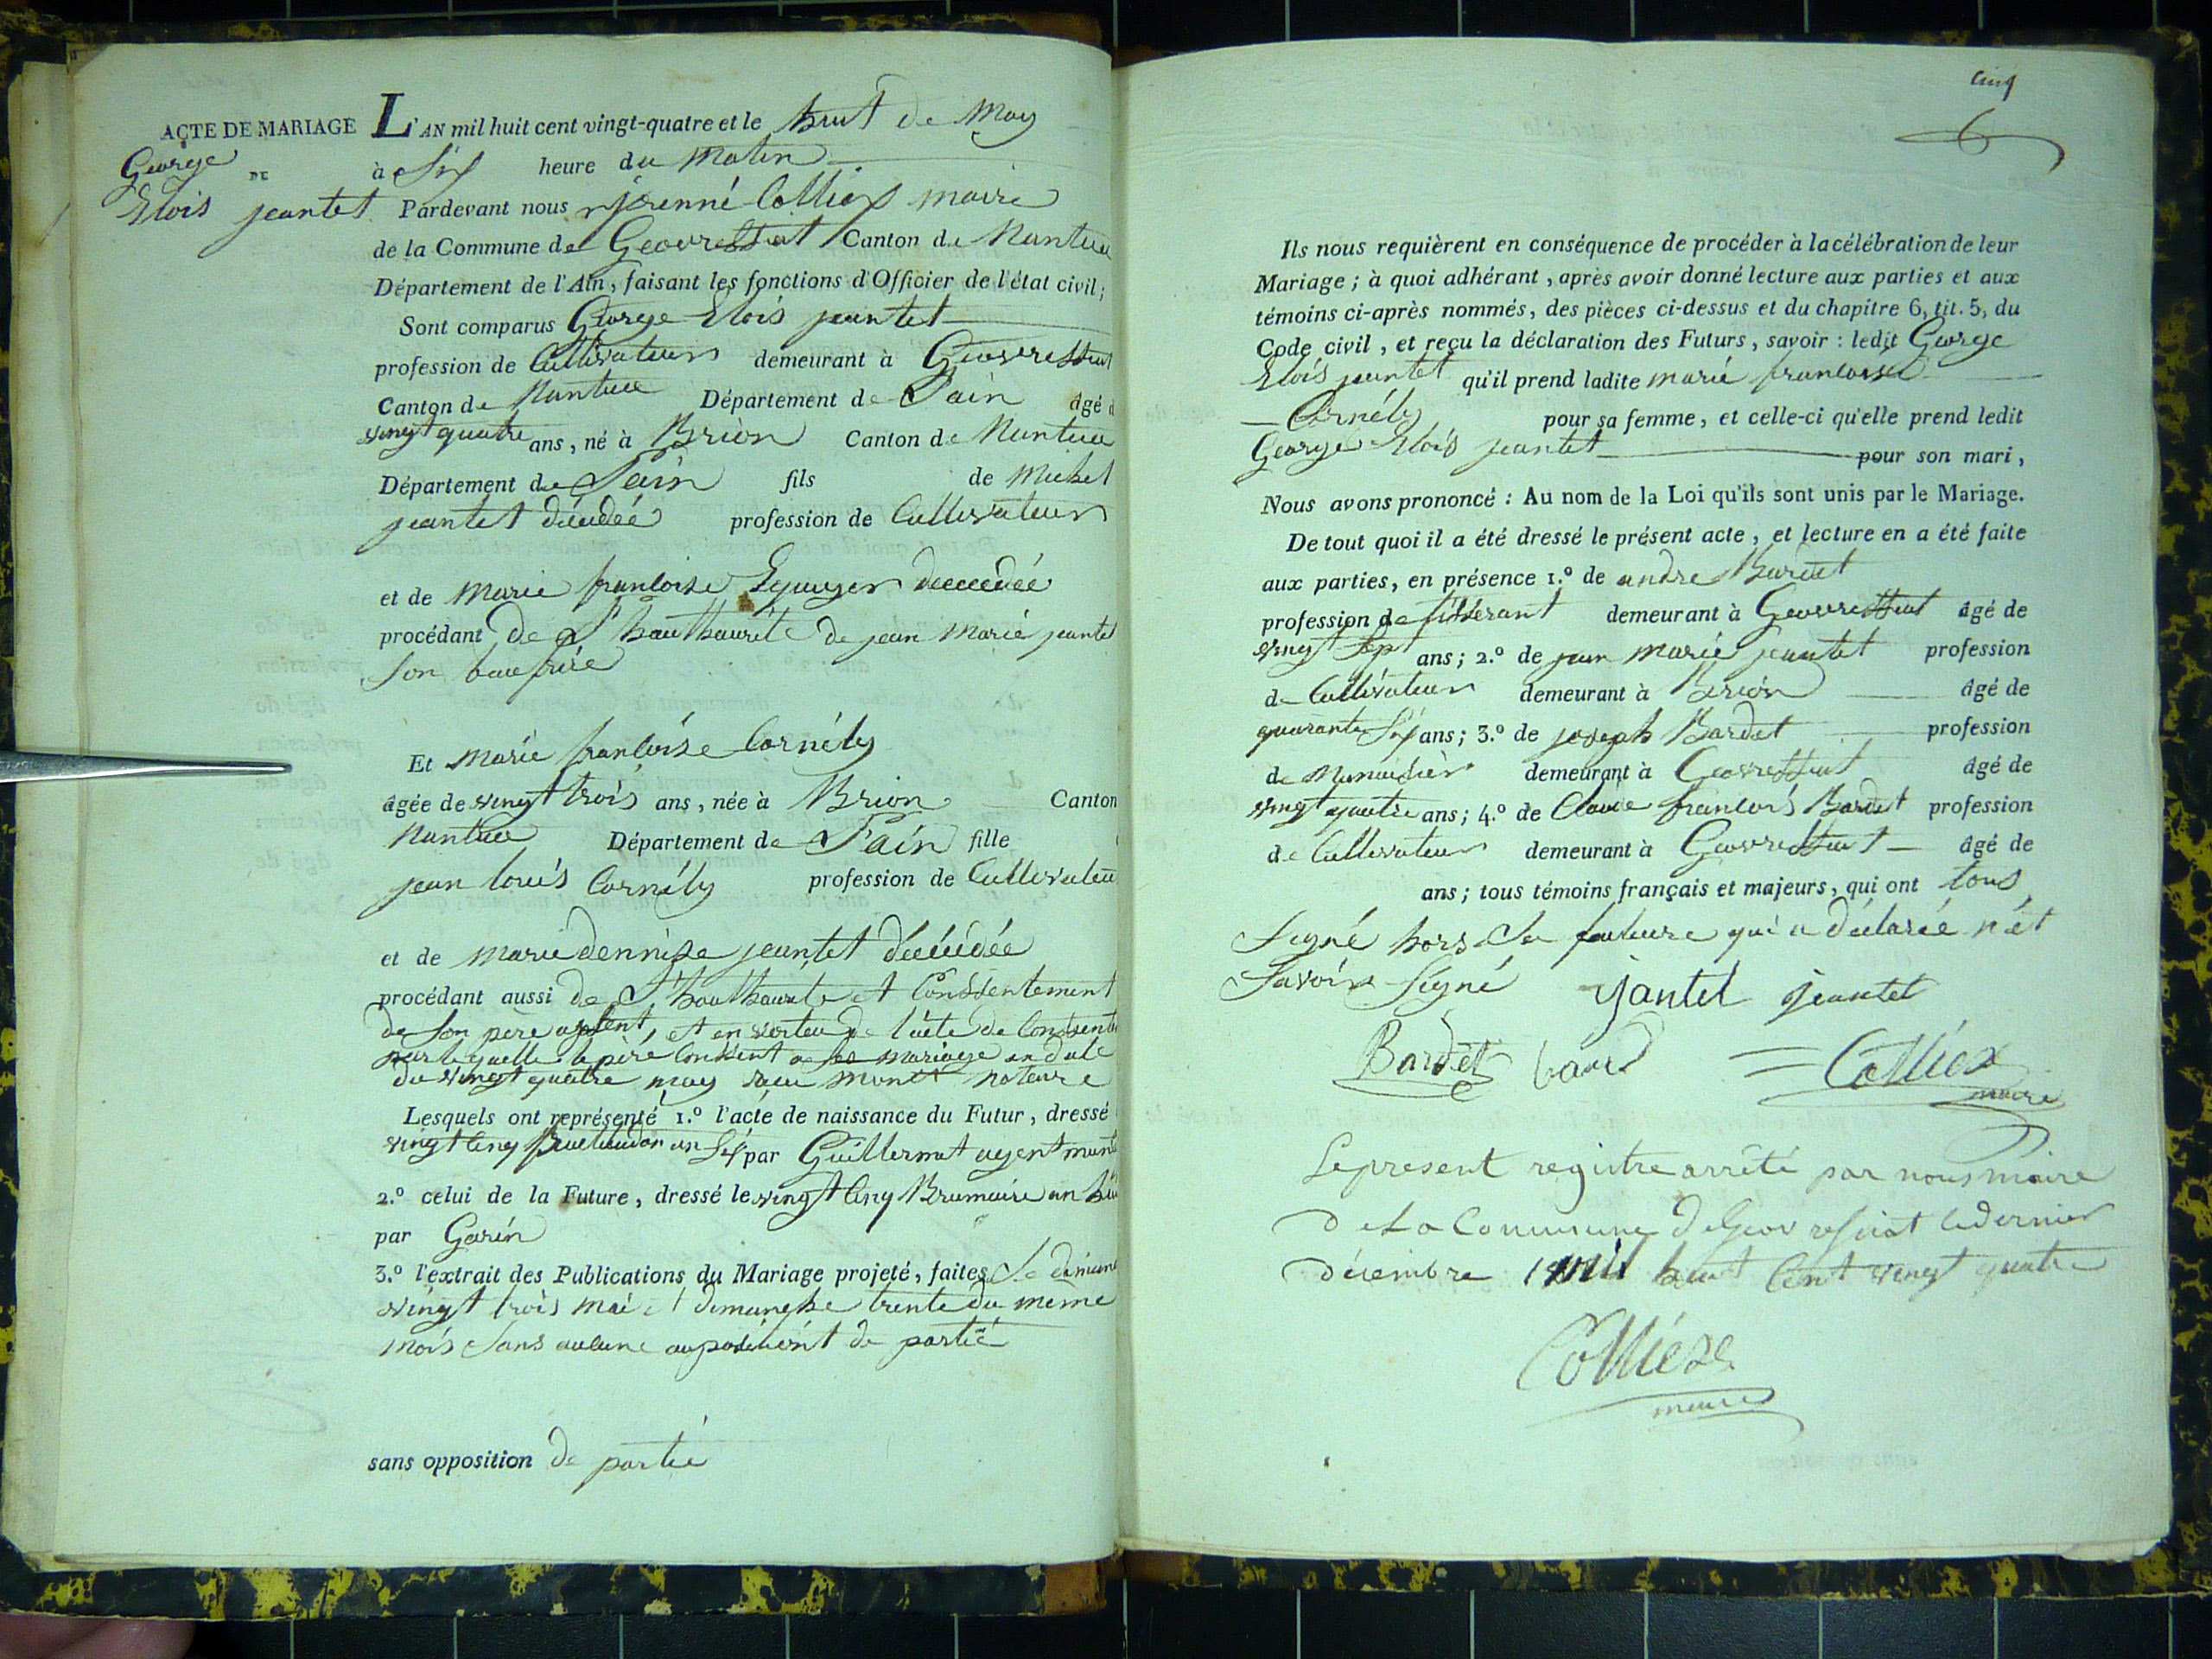 ACTE DE MARIAGE
DE
George
Elois jeantet
L'AN mil huit cent vingt-quatre et le huit de May
à Six heure du Matin
Pardevant nous Colliex maire
de la Commune de Geovressiat Canton de Nantua
Département de l'Ain, faisant les fonctions d'Officier de l'état civil;
Sont comparus George Elois jeantet
profession de Cultivateur demeurant à Geovressiat
Canton de Nantua Département de Lain âgé d
vingt quatre ans, né à Brion Canton de Nantua
Département de Lain fils de Michel
jeantet décédéé profession de Cultivateur
et de Marie francoise deccedéé
procédant de L'hauthaurité de jean Marie jeantet
Son baufrère
Et Marie francoise Cornély
âgée de vingt trois ans, née à Brion Canton
Nantua Département de Lain fille
jean louis Cornély profession de Cultivateur
et de Marie dennise jeantet décédée
procédant aussi de L'hauthaurite et Conssentement
de Son père apsent, et en verteu de l'acte de Conssente
par lequelle le père Conssent a se mariage en date
du vingt quatre may notaire
Lesquels ont représenté 1.º l'acte de naissance du Futur, dressé
vingt Cinq an Six par Guillermet agent
2.º celui de la Future, dressé le vingt Cinq Brumaire an huit
par Garin
3.º l'extrait des Publications du Mariage projeté, faites Le
vingt trois Mai et dimanche trente du meme
mois Sans aucune de partié
sans opposition de partié
Cinq
6
Ils nous requièrent en conséquence de procéder à la célébration de leur
Mariage; à quoi adhérant, après avoir donné lecture aux parties et aux
témoins ci-après nommés, des pièces ci-dessus et du chapitre 6, tit. 5, du
Code civil, et reçu la déclaration des Futurs, savoir: ledit George
Elois jeantet qu'il prend ladite marie francoise
Cornély pour sa femme, et celle-ci qu'elle prend ledit
George Elois jeantet pour son mari,
Nous avons prononcé: Au nom de la Loi qu'ils sont unis par le Mariage.
De tout quoi il a été dressé le présent acte, et lecture en a été faite
aux parties, en présence 1.º de andre Bardet
profession de tisserant demeurant à Geovressiat âgé de
vingt Sept ans; 2.º de jean Marie jeantet profession
de Cultivateur demeurant à Brion âgé de
quarante Six ans; 3.º de joseph Bardet profession
de demeurant à Geovressiat âgé de
vingt quatre ans; 4.º de Claude francois Bardet profession
de Cultivateur demeurant à Geovressiat âgé de
ans; tous témoins français et majeurs, qui ont tous
Signé hors La feuteure qui a déclarée nét
Savoir Signé jantet jeantet
Bardet bard Colliex
maire
Le present registre arrêté par nous maire
de la Commune de Geovressiat le dernier
décembre mil huit Cent vingt quatre
Colliex
maire